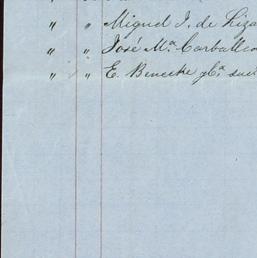 " " Miguel J. de Liza
" " José Mª Carballeo
" " E. Benecke y Cª suc